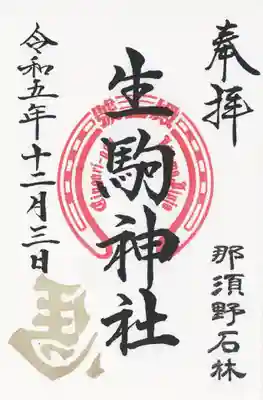 奉拝
那須野石林
生駒神社
令和五年十二月三日
馬